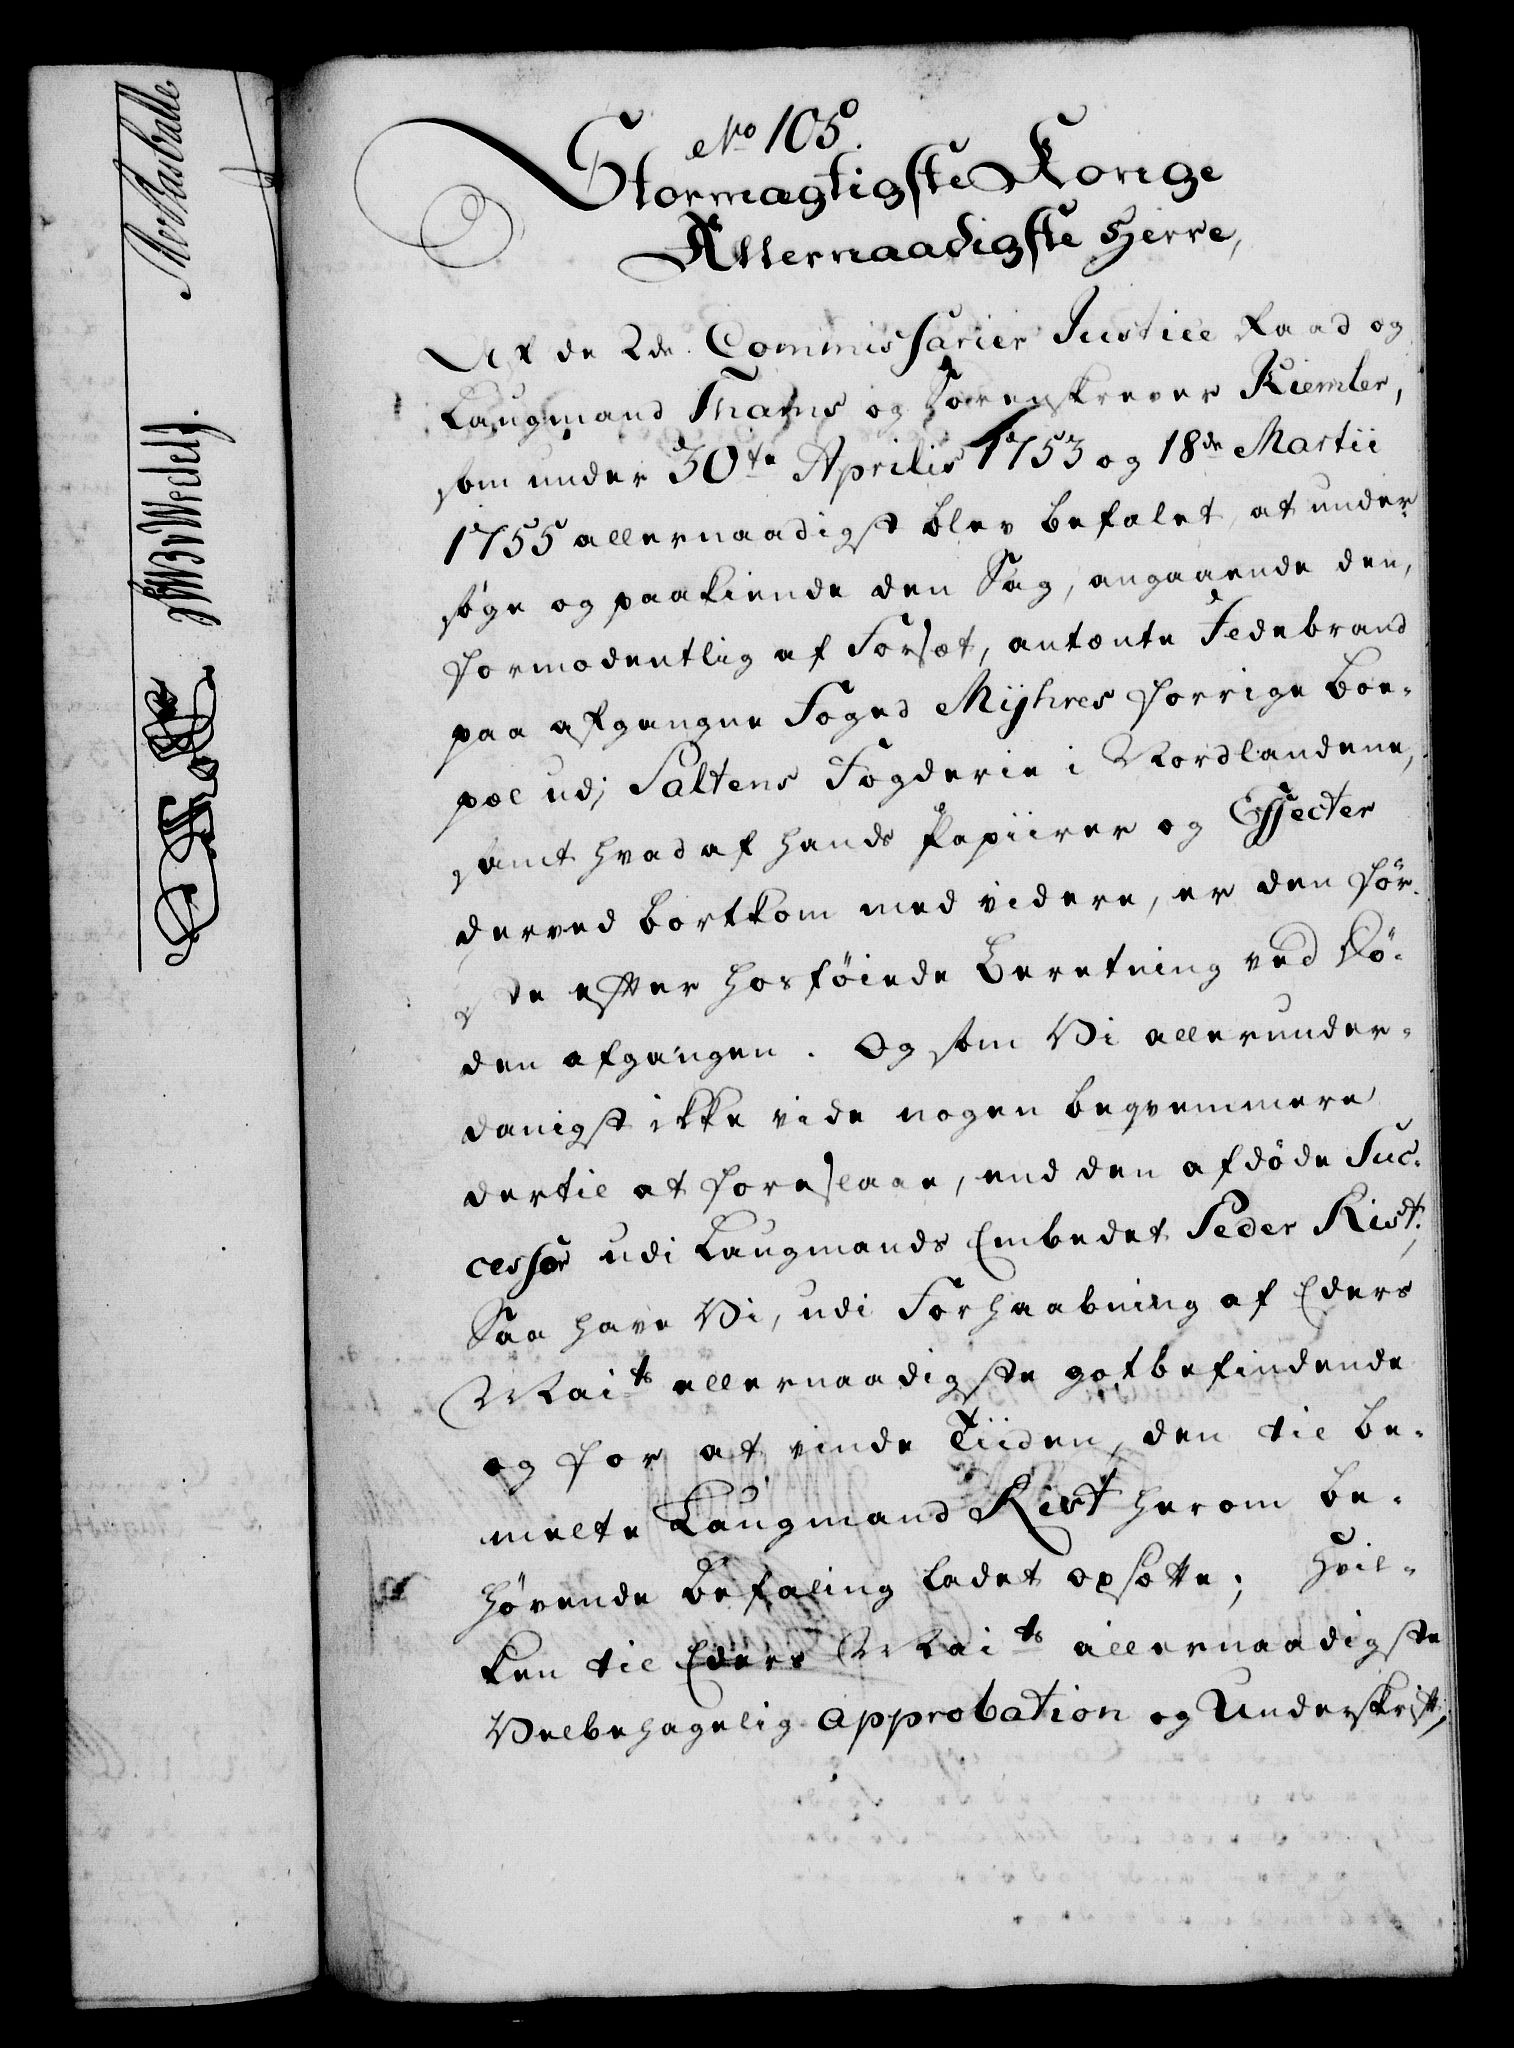 No 105.
Stormægtigste Konge
Allernaadigste Herre,
Af de 2de Commissarier Justice Raad og
Laugmand Thams og Sorenskrever Kiemler,
som under 30te Aprilis 1753 og 18de Martii
1755 allernaadigst blev befalet, at under
søge og paakiende den Sag, angaaende den,
formodentlig af Forsæt, antænte Jedebrand
paa afgangne Foged Mÿhres forrige boe-
pæl udj Saltens Fogderie i Nordlandene,
samt hvad af hands Papiirer og Effecter
derved bortkom med videre, er den før-
ste efter hosføiede Beretning ved Dö-
den afgangen. Og som Vi allerunder-
danigst ikke vide nogen beqvemmere
dertil at foreslaae, end den afdøde Suc-
cessor udi Laugmands Embedet Peder Rist;
Saa have Vi, udi Forhaabning af Eders
Maits allernaadigste gotbefindende
og for at vinde Tiiden, den til be-
melte Laugmand Rist herom be-
hørende Befaling ladet opsætte; Hvil-
ken til Eders Maits allernaadigste
Velbehagelig approbation og Underskrift,